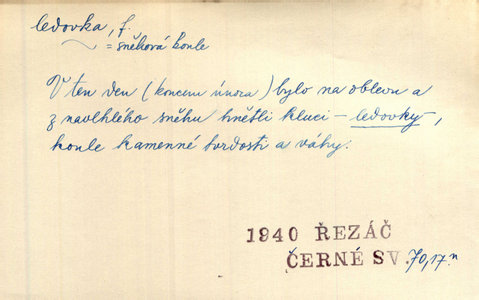 ledovka, f.
= sněhová koule
V ten den (koncem února) bylo na oblevu a
z navlhlého sněhu hnětli kluci – ledovky,
koule kamenné tvrdosti a váhy.
1940 ŘEZÁČ
ČERNÉ SV. 70,17n